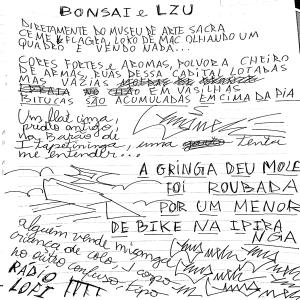 BONSAI e LZU
DIRETAMENTE DO MUSEU DE ARTE SACRA
CEME K FLAGRA, LOKO DE MAC OLHANDO UM
QUADRO E VENDO NADA...
CORES FORTES e AROMAS, POLVORA CHEIRO
DE ARMAS, RUAS DESSA CAPITAL LOTADAS
MAS VAZIAS
EM VASILHAS
BITUCAS SÃO ACUMULADAS EM CIMA DA PIA
Um flat cima,
predio antigo,
no Barão de
Itapetininga, uma tenta
me entender...
A GRINGA DEU MOLE
FOI ROUBADA
POR UM MENOR
DE BIKE NA IPIRA
NGA
alguem vende miçanga
criança de colo, 1 corpo
no outro confuso tipo
RADIO
LOFI